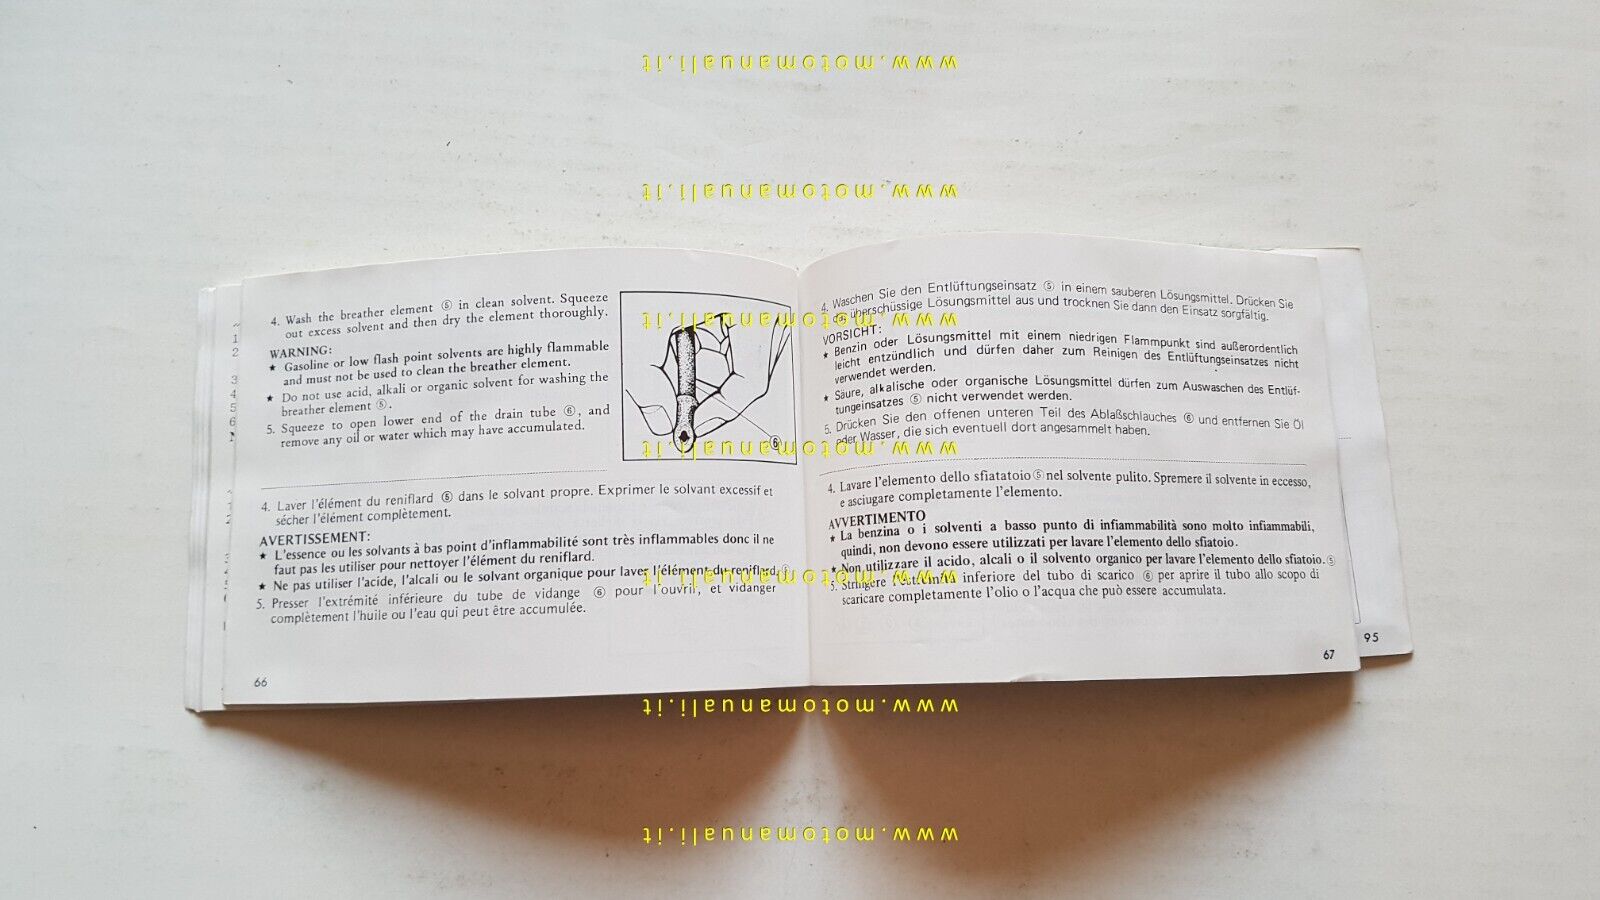 www.motomanuali.it
www.motomanuali.it
4. Wash the breather element ⑤ in clean solvent. Squeeze
out excess solvent and then dry the element thoroughly.
WARNING:
★ Gasoline or low flash point solvents are highly flammable
and must not be used to clean the breather element.
★ Do not use acid, alkali or organic solvent for washing the
breather element ⑤.
5. Squeeze to open lower end of the drain tube ⑥, and
remove any oil or water which may have accumulated.
⑥
4. Laver l'élément du reniflard ⑤ dans le solvant propre. Exprimer le solvant excessif et
sécher l'élément complètement.
AVERTISSEMENT:
★ L'essence ou les solvants à bas point d'inflammabilité sont très inflammables donc il ne
faut pas les utiliser pour nettoyer l'élément du reniflard.
★ Ne pas utiliser l'acide, l'alcali ou le solvant organique pour laver l'élément du reniflard ⑤.
5. Presser l'extrémité inférieure du tube de vidange ⑥ pour l'ouvrir, et vidanger
complètement l'huile ou l'eau qui peut être accumulée.
66
www.motomanuali.it
www.motomanuali.it
www.motomanuali.it
4. Waschen Sie den Entlüftungseinsatz ⑤ in einem sauberen Lösungsmittel. Drücken Sie
das überschüssige Lösungsmittel aus und trocknen Sie dann den Einsatz sorgfältig.
VORSICHT:
★ Benzin oder Lösungsmittel mit einem niedrigen Flammpunkt sind außerordentlich
leicht entzündlich und dürfen daher zum Reinigen des Entlüftungseinsatzes nicht
verwendet werden.
★ Säure, alkalische oder organische Lösungsmittel dürfen zum Auswaschen des Entlüf-
tungseinsatzes ⑤ nicht verwendet werden.
5. Drücken Sie den offenen unteren Teil des Ablaßschlauches ⑥ und entfernen Sie Öl
oder Wasser, die sich eventuell dort angesammelt haben.
4. Lavare l'elemento dello sfiatatoio ⑤ nel solvente pulito. Spremere il solvente in eccesso,
e asciugare completamente l'elemento.
AVVERTIMENTO
★ La benzina o i solventi a basso punto di infiammabilità sono molto infiammabili,
quindi, non devono essere utilizzati per lavare l'elemento dello sfiatoio.
★ Non utilizzare il acido, alcali o il solvento organico per lavare l'elemento dello sfiatoio. ⑤
5. Stringere l'estremità inferiore del tubo di scarico ⑥ per aprire il tubo allo scopo di
scaricare completamente l'olio o l'acqua che può essere accumulata.
67
95
www.motomanuali.it
www.motomanuali.it